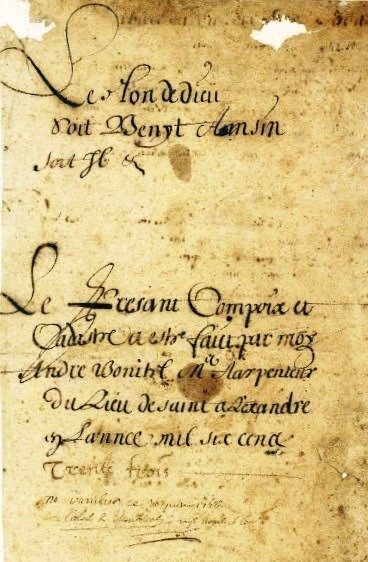 Le Non de dieu
Soit Benyt Ainsin
soit Il &
Le Presant Compoix et
Cadastre a estre faict par moy
Andre Bonit Mr Harpenteur
du Lieu de saint alexandre
en Lannee mil six cens
Trente trois